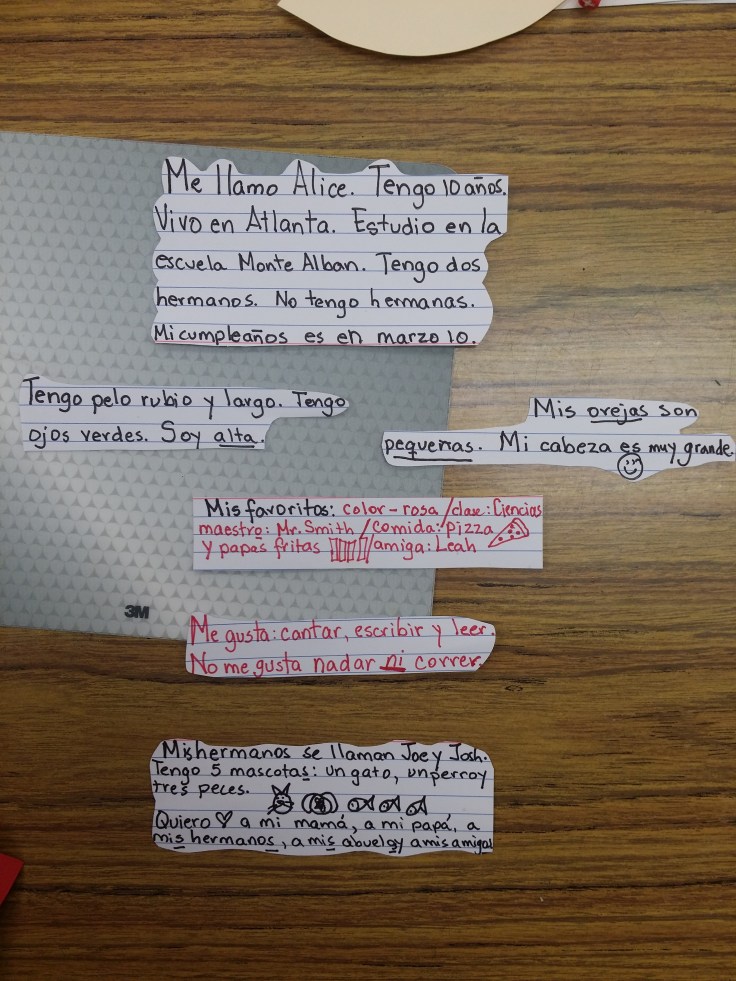 Me llamo Alice. Tengo 10 años.
Vivo en Atlanta. Estudio en la
escuela Monte Alban. Tengo dos
hermanos. No tengo hermanas.
Mi cumpleaños es en marzo 10.
Tengo pelo rubio y largo. Tengo
ojos verdes. Soy alta.
Mis orejas son
pequeñas. Mi cabeza es muy grande.
Mis favoritos: color-rosa/clase: Ciencias
maestro: Mr. Smith/comida: pizza
y papas fritas /amiga: Leah
3M
Me gusta: cantar, escribir y leer.
No me gusta nadar ni correr.
Mis hermanos se llaman Joe y Josh.
Tengo 5 mascotas: un gato, un perro y
tres peces.
Quiero a mi mamá, a mi papá, a
mis hermanos, a mis abuelos y a mis amigas